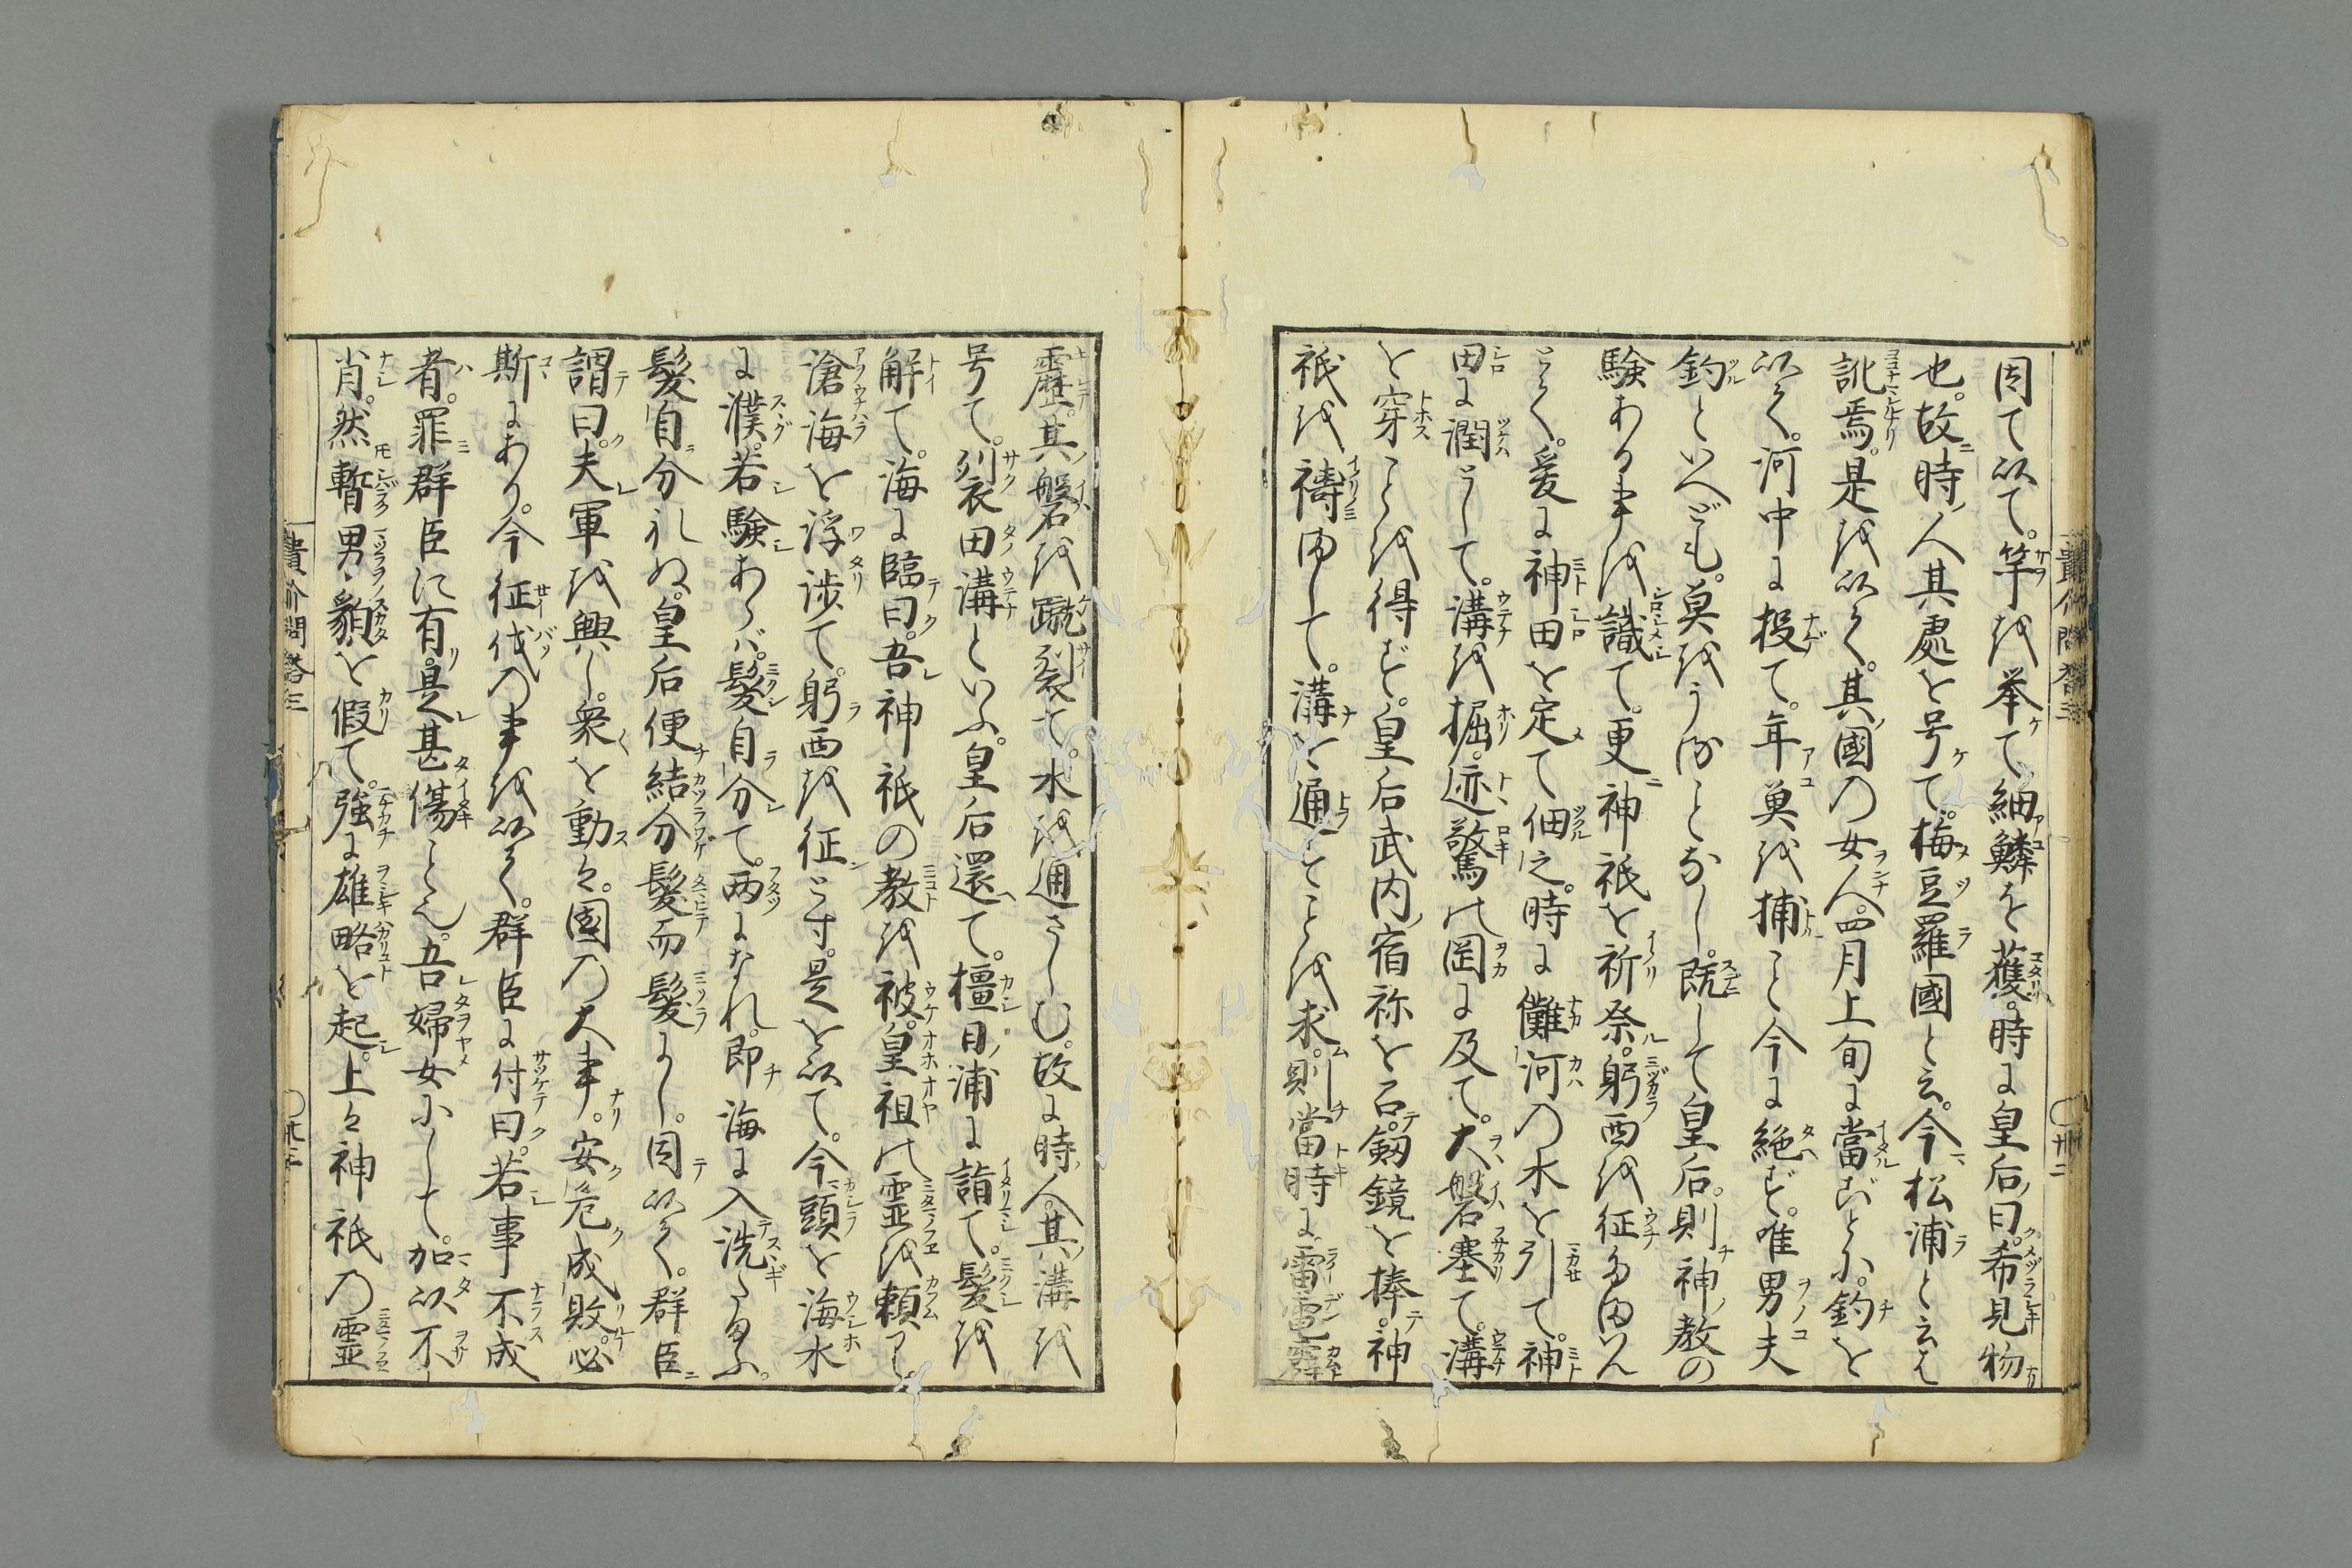 因て以て。竿を挙て細鱗を獲。時に皇后ノ曰。希見物
也。故ニ時ノ人其處を号て。梅豆羅國と云。今松浦と云は
訛焉。是を以て。其ノ國の女人。四月上旬に當ごとに。釣を
以て。河中に投て。年魚を捕こと今に絶ず。唯男夫
釣といへども。魚をうることなし。既して皇后。則神ノ教の
験ある事を識て。更ニ神祇を祈祭。躬西を征たまはん
とて。爰に神田を定て佃之。時に儺河の水を引て。神
田に潤として。溝を掘。迹驚の岡に及て。大磐塞て。溝
を穿ことを得ず。皇后武内ノ宿祢を召。劔鏡を捧て。神
祇を禱ましめて。溝を通ことを求。則當時に雷電霹
靂。其ノ磐を蹴裂て。水を通さしむ。故に時ノ人。其ノ溝を
号て。裂田ノ溝といふ。皇后還て。橿日ノ浦に詣て。髪を
解て。海に臨曰。吾神祇の教を被。皇祖の霊を頼て。
滄海を浮渉て。躬西を征とす。是を以て。今頭を海水
に滌。若験あらば。髪自分て。両になれ。即海に入洗たまふ。
髪自分れぬ。皇后便結分髪而髪にし。因以て。群臣ニ
謂曰。夫軍を興し。衆を動は。國の大事。安危成敗。必
斯にあり。今征伐の事を以て。群臣に付曰。若事不成
者。罪群臣に有。是甚傷ことん。吾婦女にして。加以不
肖。然暫男ノ貌を假て。強に雄略を起。上は神祇の霊